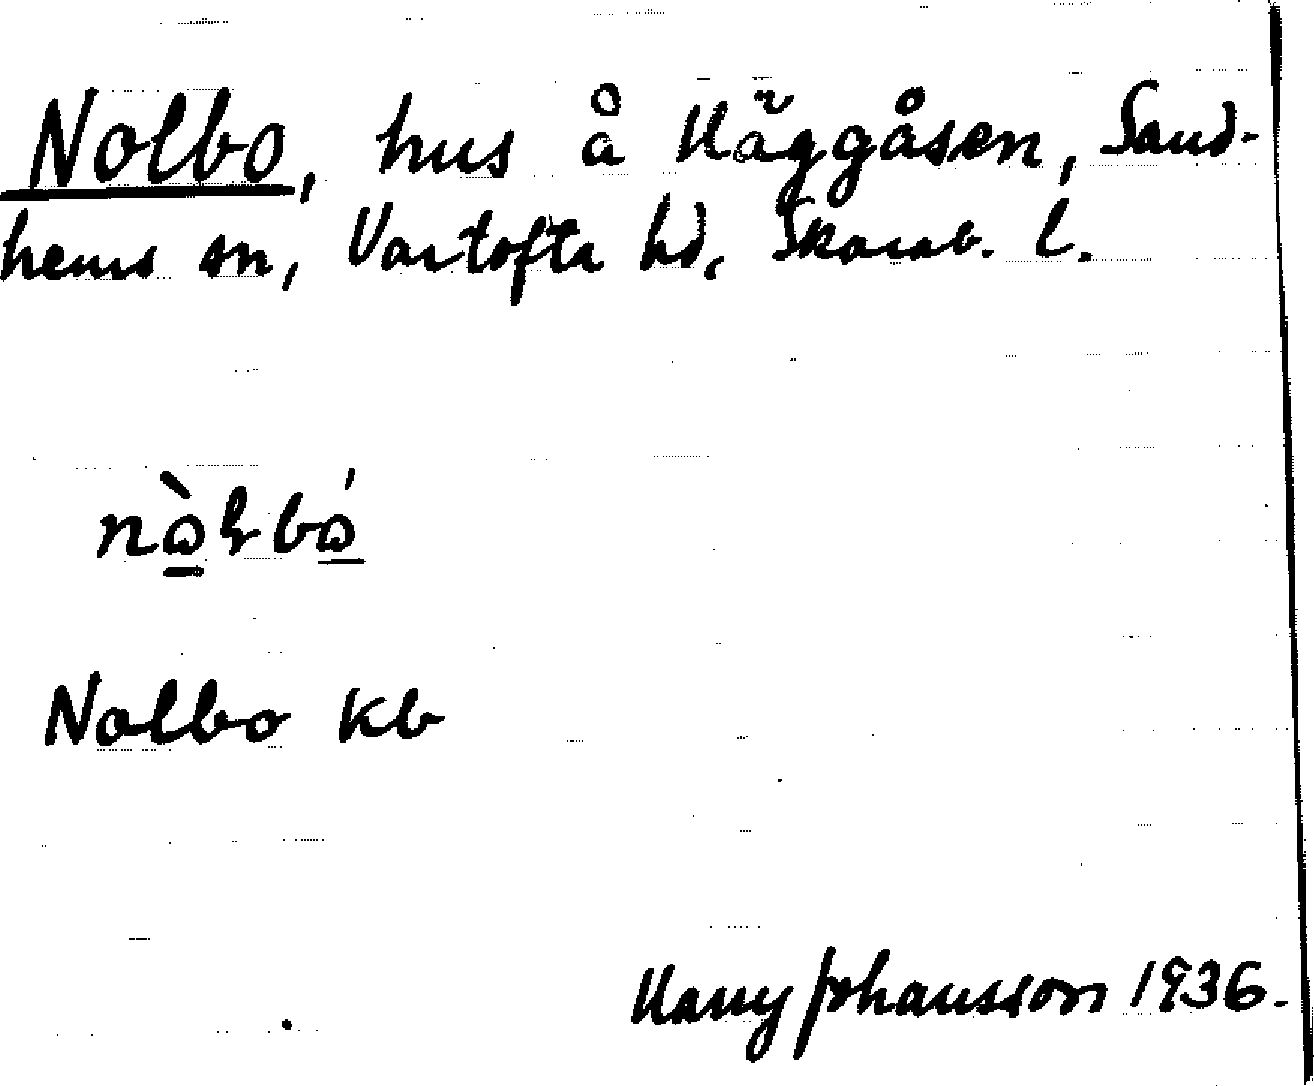 Nolbo, hus å Häggåsen, Sand-
hems sn, Vartofta hd, Skarab. l.
Nolbo kb
Harry Johansson 1936.